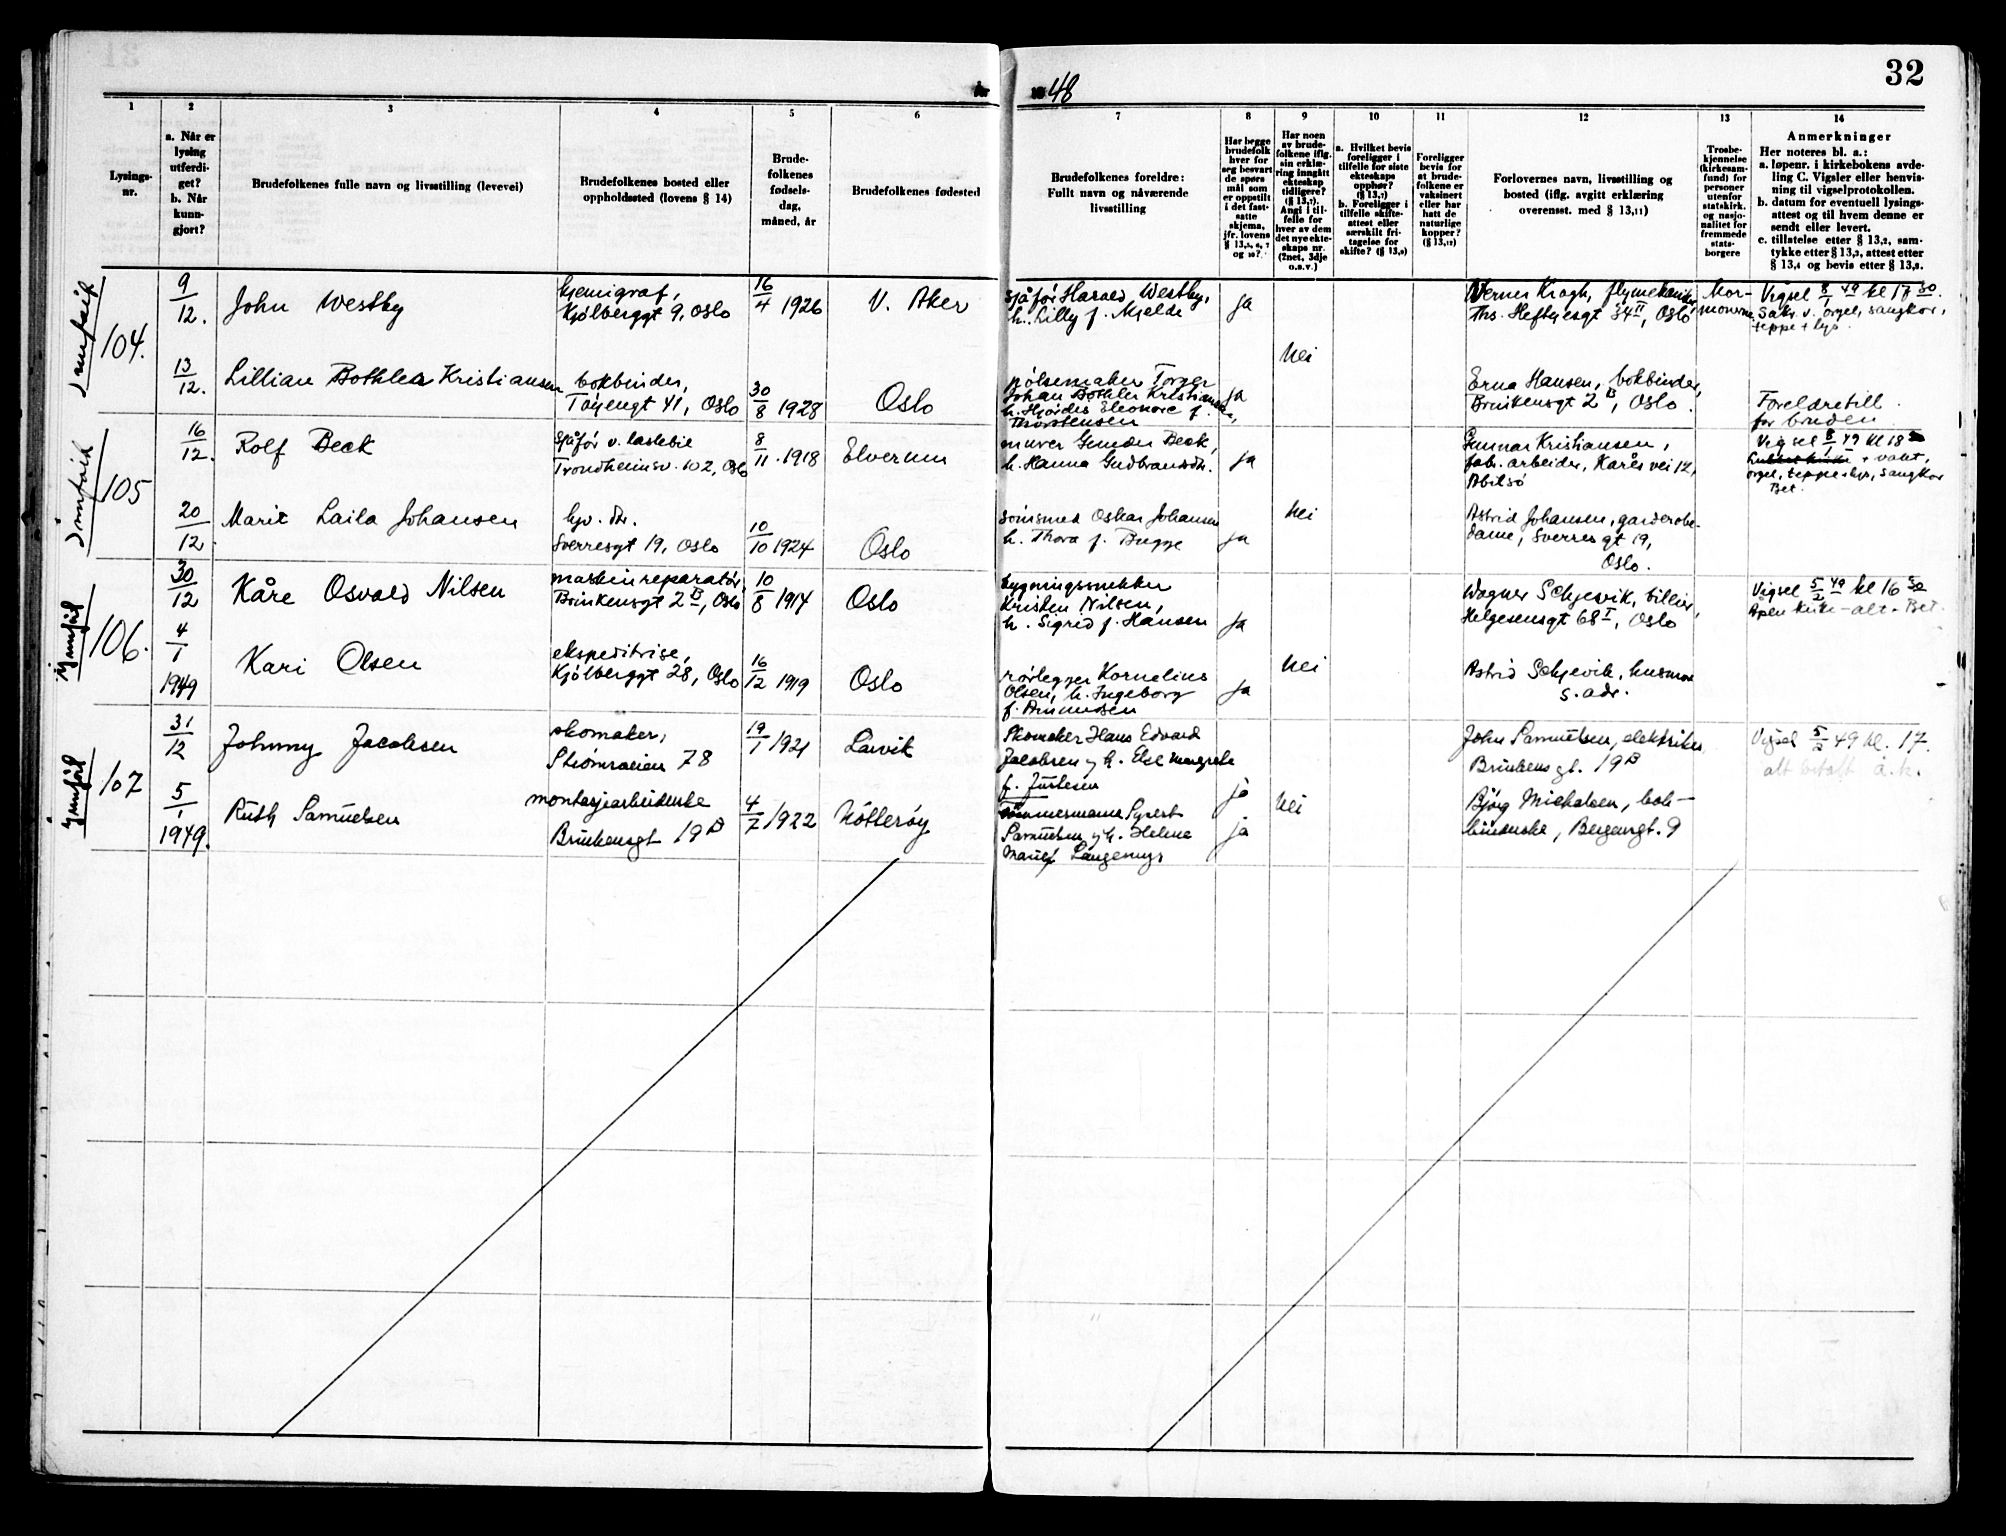 32
år
1948
1
2
3
4
5
6
7
8
9
10
11
12
13
14
Lysings-
nr.
a. Når er
lysing
utferdi-
get?
b. Når
kunn-
gjort?
Brudefolkenes fulle navn og livsstilling (levevei)
Brudefolkenes bosted eller
oppholdssted (lovens § 14)
Brude-
folkenes
fødsels-
dag,
måned, år
Brudefolkenes fødested
Brudefolkenes foreldre:
Fullt navn og nåværende
livsstilling
Har begge
brudefolk
hver for
seg besvart
de spørs
mål som
er oppstilt
i det fast-
satte
skjema,
jfr. lovens
§ 13,5, 6, 7
og 10?
Har noen
av brude-
folkene iflg.
sin erklæ-
ring inngått
ekteskap
tidligere?
(§ 13,7).
Angi i til-
felle for
hver av dem
det nye ekte-
skaps nr.
(2net, 3dje
o.s.v.)
a. Hvilket bevis
foreligger i
tilfelle for siste
ekteskaps
opphør?
(§ 13,7)
b. Foreligger i
tilfelle skifte-
attest eller
særskilt fri-
tagelse for
skifte? (§ 13,8)
Foreligger
bevis for
at brude-
folkene er
vaksinert
eller har
hatt de
naturlige
kopper?
(§ 13,12)
Forlovernes navn, livsstilling og
bosted (iflg. avgitt erklæring
overensst. med § 13,11)
Trosbe-
kjennelse
(kirkesam-
fund) for
personer
utenfor
statskirk.
og nasjo-
nalitet for
fremmede
stats-
borgere
Anmerkninger
Her noteres bl. a.:
a. løpenr. i kirkebokens avde-
ling C. Vigsler eller henvis-
ning til vigselprotokollen.
b. datum for eventuell lysings-
attest og til hvem denne er
sendt eller levert.
c. tillatelse etter § 13,2, sam-
tykke etter § 13,3, attest etter
§ 13,4 og bevis etter § 13,8.
104.
9/12.
John Westby
kjemigraf,
Kjølberggt 9, Oslo
16/4 1926
V. Aker
sjåfør Harald Westby,
h. Lilly f. Mjelde
ja
Nei
Werner Krogh, flymekaniker,
Ths. Heftyesgt 34 II, Oslo
Mor-
monerne
Vigsel 8/1 49 kl 17 30.
Sakr. v. orgel, sangkor,
teppe + lys.
13/12.
Lillian Bothler Kristiansen
bokbinder,
Töyengt 41, Oslo
30/8 1928
Oslo
pølsemaker Torger
Johan Bothler Kristiansen,
h. Hjørdis Eleonore f.
Thorstensen
ja
Erna Hansen, bokbinder,
Brinkensgt 2 B, Oslo.
Foreldretill.
for bruden
105
16/12.
Rolf Beck
sjåfør v. lastebil
Trondheimsv. 102, Oslo
8/11. 1918
Elverum
murer Gunder Beck,
h. Hanna Gudbrandsdr.
ja
Nei
Gunnar Kristiansen,
fabr. arbeider, Kårés vei 12,
Abilsö
Vigsel 8/1 49 kl 18
+ vakt,
orgel, teppe + lys, sangkor
Bet.
20/12.
Marit Laila Johansen
hjv. dtr.
Sverresgt 19, Oslo
10/10 1924
Oslo
Oskar Johansen
h. Thora f. Bugge
ja
Astrid Johansen, garderobe-
dame, Sverresgt 19,
Oslo.
106.
30/12
Kåre Osvald Nilsen
maskinreparatör
Brinkensgt 2 B, Oslo
10/8 1914
Oslo
bygningssnekker
Kristen Nilsen,
h. Sigrid f. Hansen
ja
Nei
Wagner Schjesvik,
Helgesensgt 68 I, Oslo
Vigsel 5/2 49 kl 16 30
Åpen kirke - alt - Bet.
4/1
1949
Kari Olsen
ekspeditrise,
Kjølberggt 28, Oslo
16/12 1919
Oslo
rørlegger Kornelius
Olsen, h. Ingeborg
f. Amundsen
ja
Astrid Schjesvik, husmor
s. adr.
107
31/12
Johnny Jacobsen
skomaker,
Strömveien 78
19/1 1921
Larvik
Skomaker Hans Edvard
Jacobsen og h. Else Margrethe
f. Justesen
ja
Nei
John Samuelsen, elektriker
Brinkensgt. 19 B
Vigsel 5/2 49 kl. 17.
alt betalt
5/1
1949.
Ruth Samuelsen
montasjearbeiderske
Brinkensgt 19 B
4/7 1922
Nötteröy
Tömmermann Syvert
Samuelsen og h. Helene
Marie f. Langemyr
ja
Björg Michalsen, bok-
binderske, Bergengt. 9